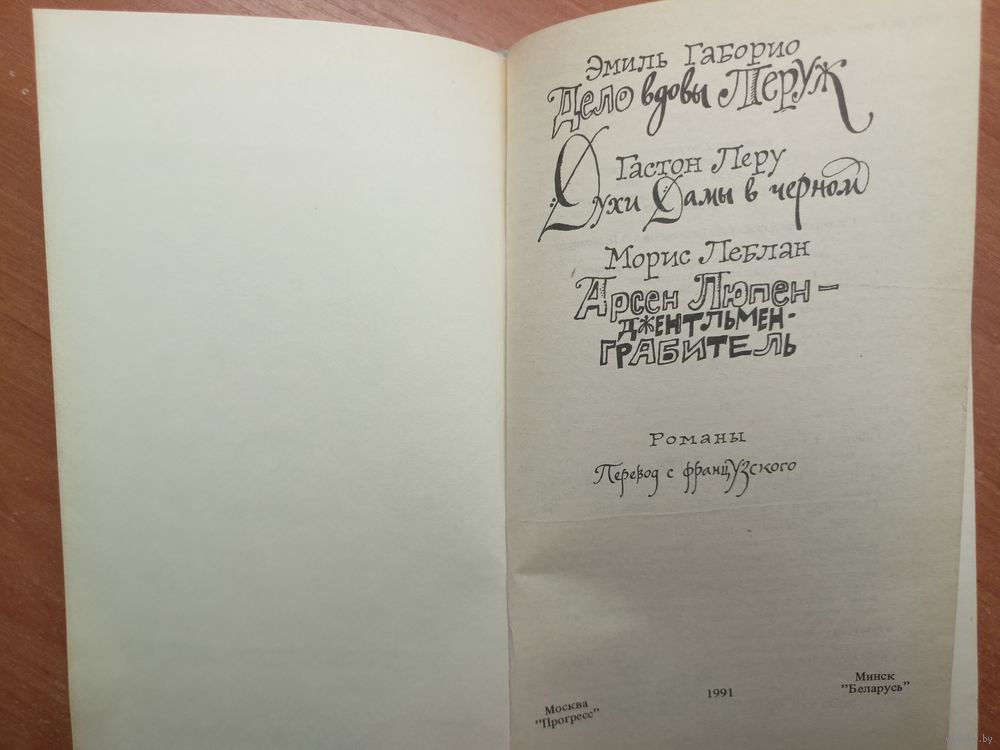 Эмиль Габорио
Дело вдовы Леруж
Гастон Леру
Духи Дамы в черном
Морис Леблан
Арсен Люпен –
ДЖЕНТЛЬМЕН-
ГРАБИТЕЛЬ
Романы
Перевод с французского
Москва
"Прогресс"
1991
Минск
"Беларусь"